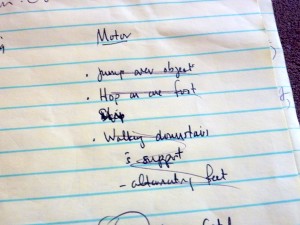 Motor
• Jump over object
• Hop on one foot
Skip
• Walking downstairs
support
- alternating feet